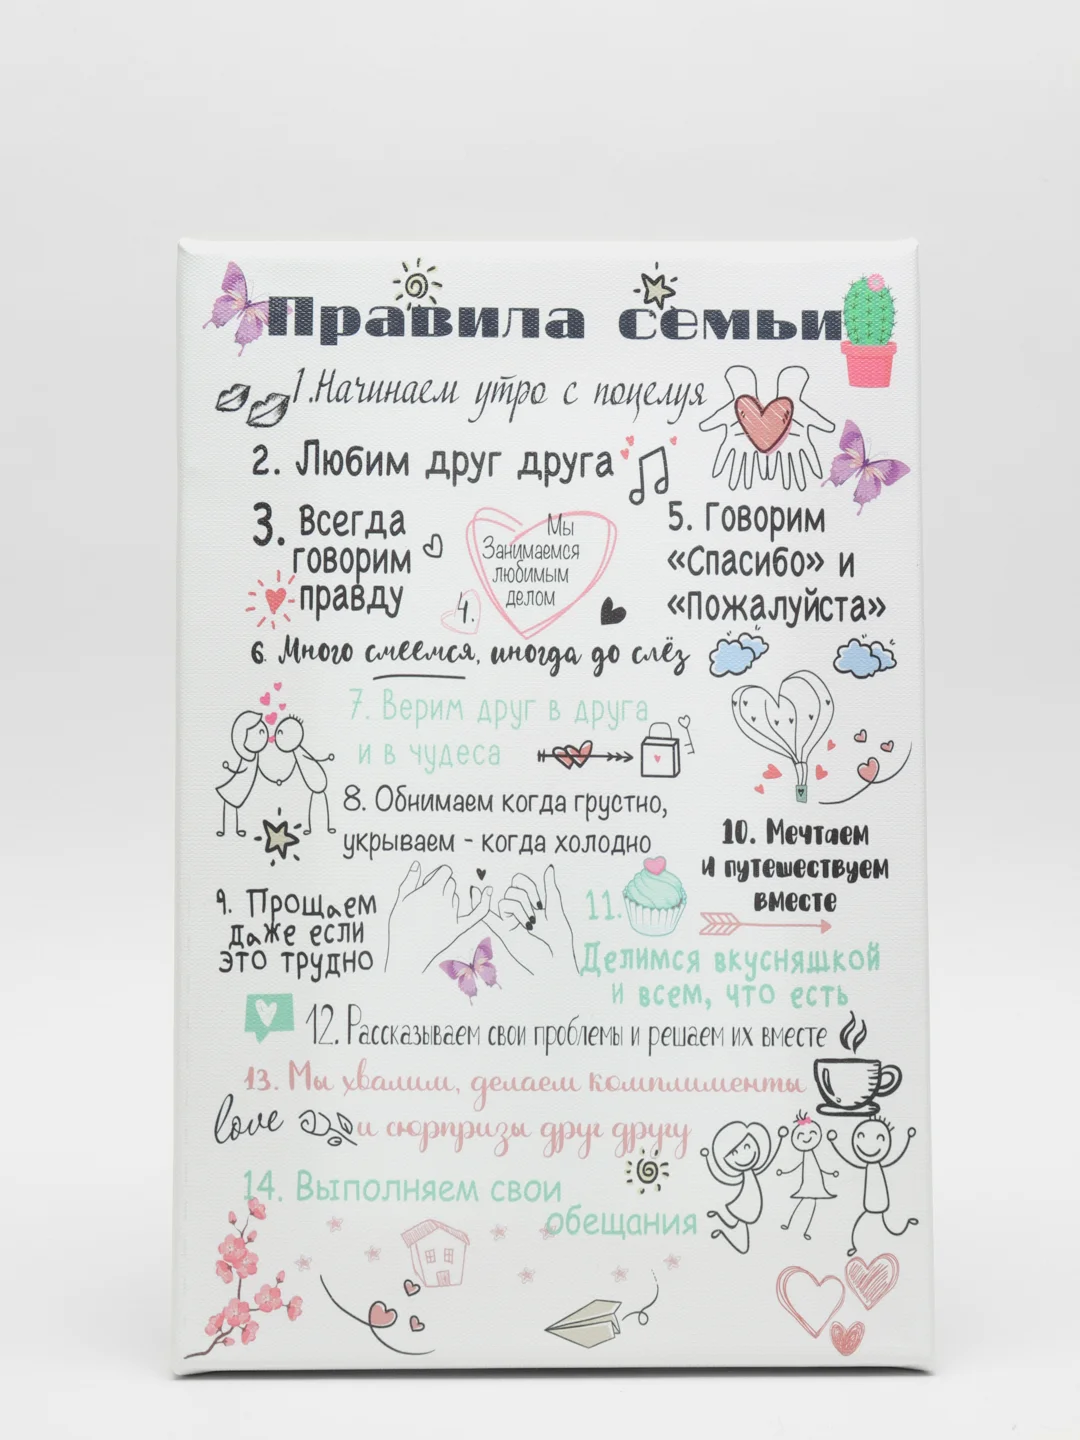 Правила семьи
1.Начинаем утро с поцелуя
2. Любим друг друга
3. Всегда
говорим
правду
4.
Мы
Занимаемся
любимым
делом
5. Говорим
«Спасибо» и
«Пожалуйста»
6. Много смеемся, иногда до слёз
7. Верим друг в друга
и в чудеса
8. Обнимаем когда грустно,
укрываем - когда холодно
9. Прощаем
даже если
это трудно
10. Мечтаем
и путешествуем
вместе
11.
Делимся вкусняшкой
и всем, что есть
12. Рассказываем свои проблемы и решаем их вместе
13. Мы хвалим, делаем комплименты
и сюрпризы друг другу
love
14. Выполняем свои
обещания